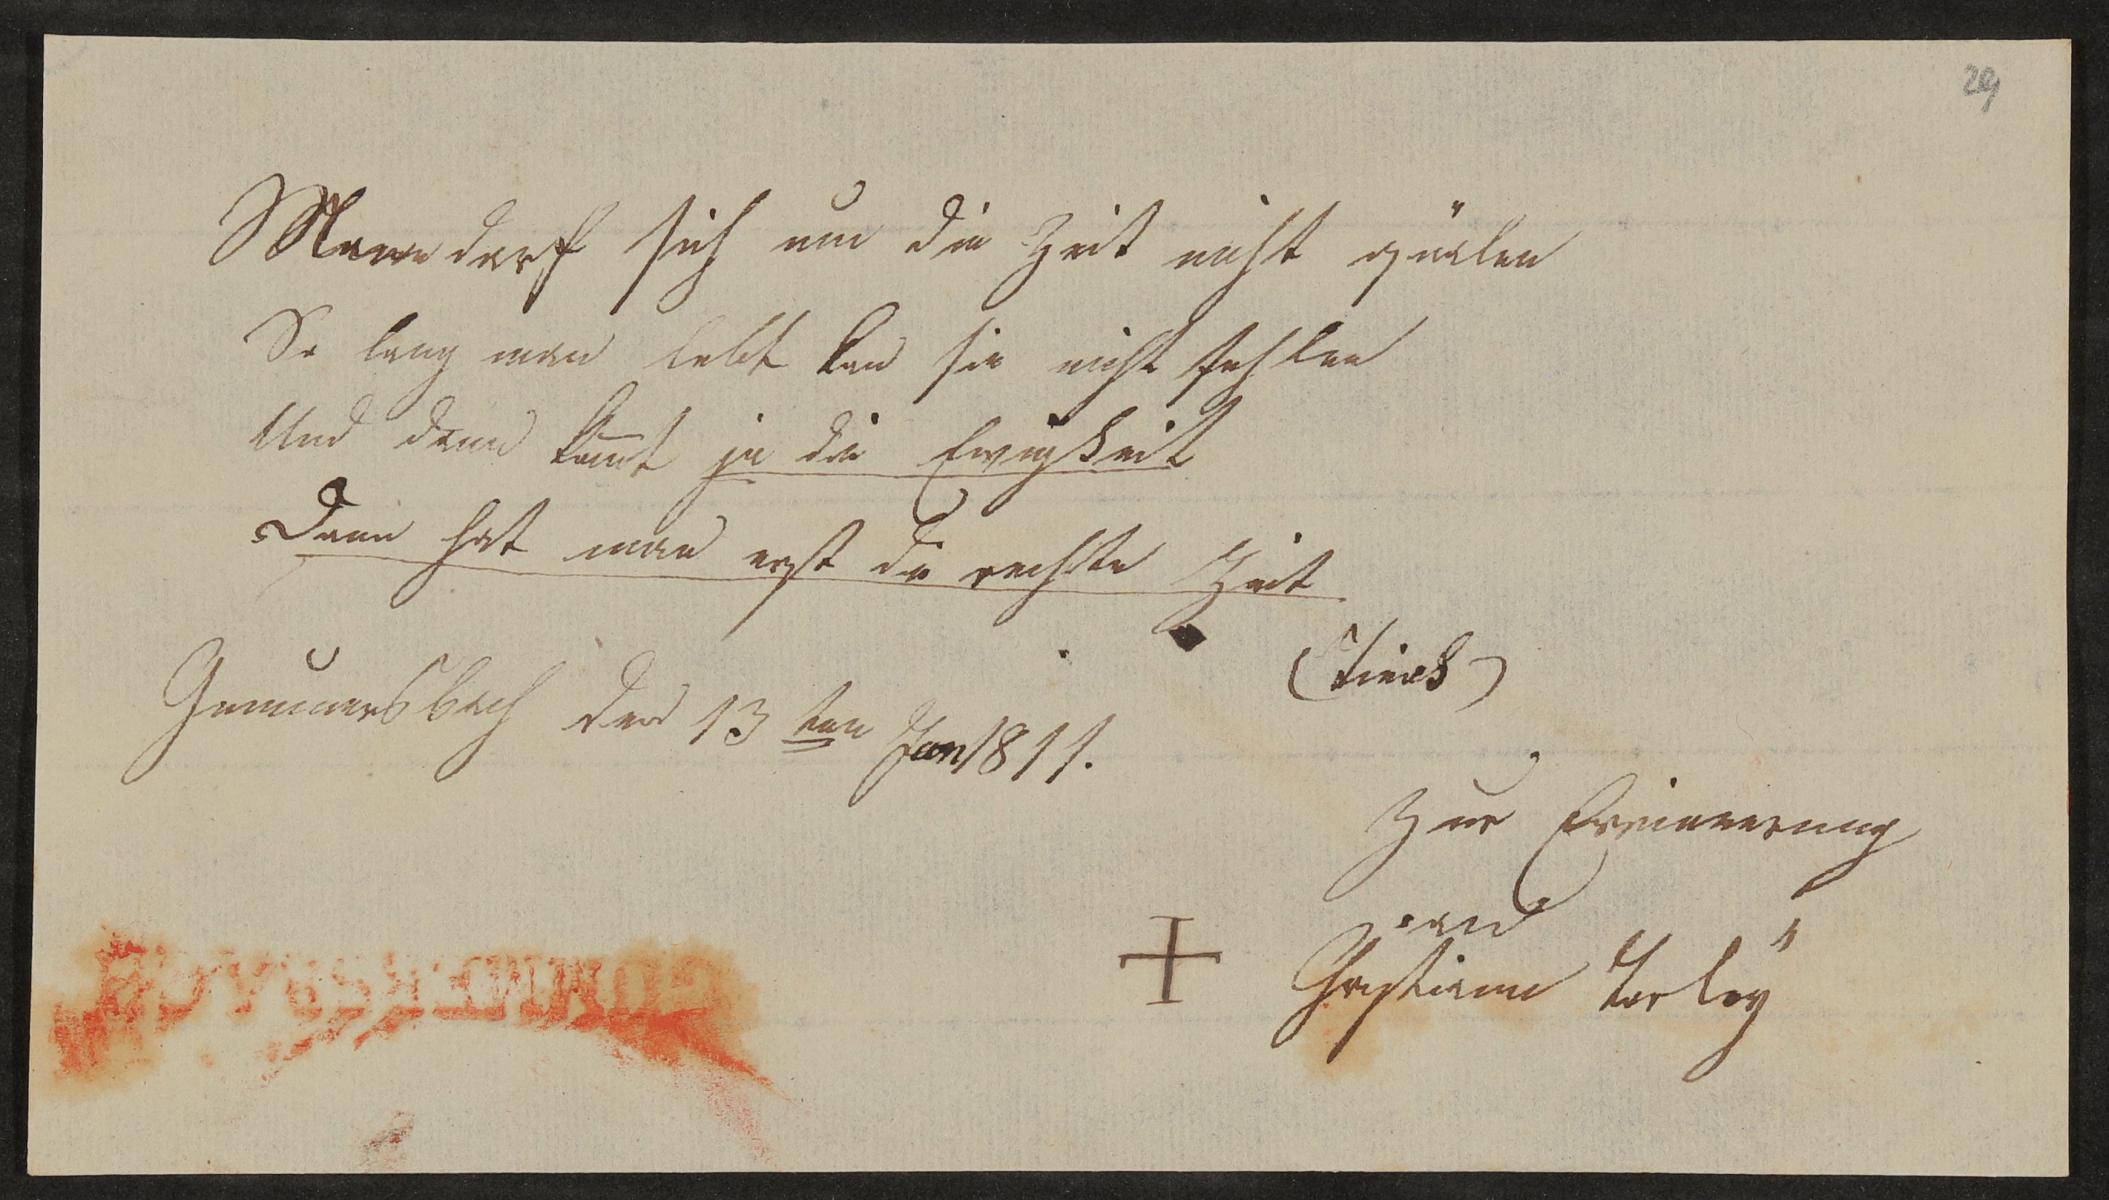 29
Mann darf sich um die Zeit nicht quälen
So lang man lebt kan sie nicht fehlen
Und dann kom̅t ja die Ewigkeit
Dann hat man erst die rechte Zeit
(Tieck)
Gummersbach den 13ten Jan 1811.
Zur Erinnerung
von
Christiane